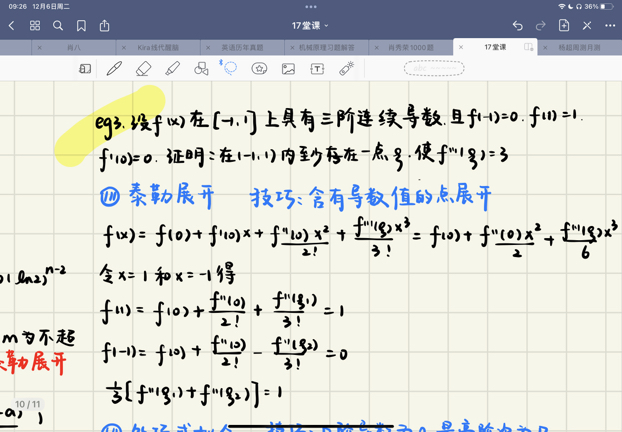 09:26 12月6日周二
36%
17堂课
肖八
Kira线代腿腿
英语历年真题
机械原理习题解答
肖秀荣1000题
17堂课
杨超周测月测
eg3. 设f(x)在[-1,1]上具有三阶连续导数,且f(-1)=0. f(1)=1.
f'(0)=0. 证明:在(-1,1)内至少存在一点ξ.使f'''(ξ)=3
(III) 泰勒展开 技巧:含有导数值的点展开
f(x)= f(0)+f'(0)x+f''(0)x²/2!+f'''(ξ)x³/3!=f(0)+f''(0)x²/2+f'''(ξ)x³/6
(ln2)ⁿ⁻²
令x=1和x=-1得
f(1)=f(0)+f''(0)/2!+f'''(ξ₁)/3!=1
m为不超
f(-1)=f(0)+f''(0)/2!-f'''(ξ₂)/3!=0
勒展开
1/3[f'''(ξ₁)+f'''(ξ₂)]=1
10 / 11